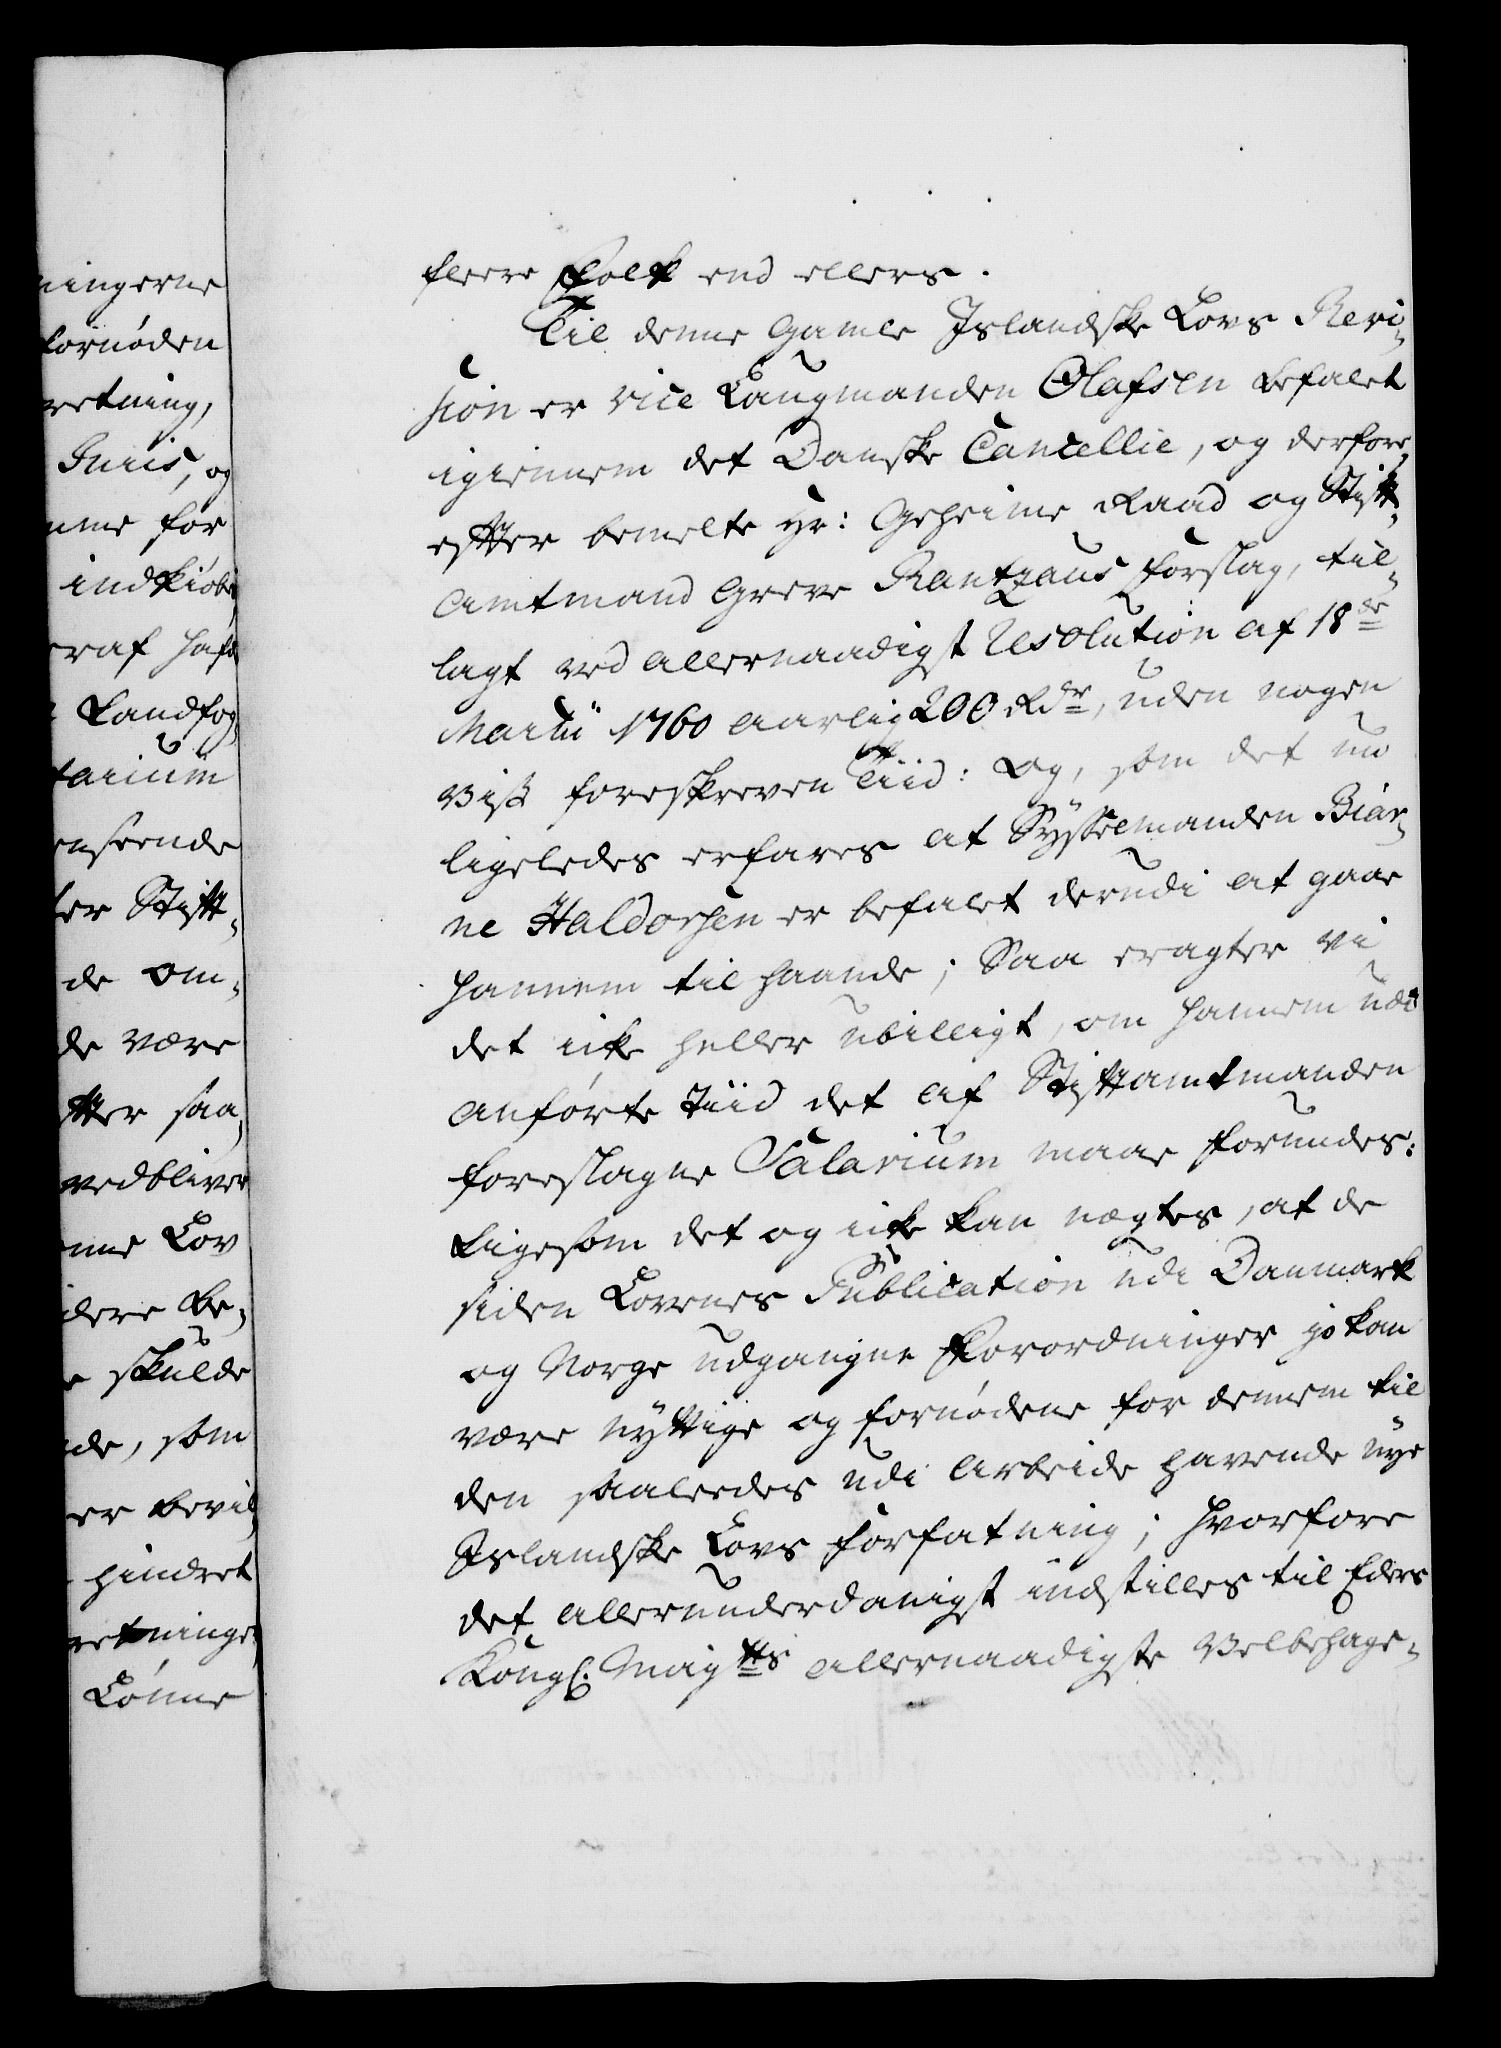 ningerne
fornøden
retning,
Juris, og
nne for
indkiøbe
eraf haft
Landfog,
tarium
enseende
ter Stift,
de om,
de være
tter saa,
vedbliver
nne Lov
dere be,
skulde
de, som
er bevil,
hindret
retninger,
Lönne
fleere Folk end ellers.
Til denne gamle Islandske Lovs Revi,
sion er Vice Laugmanden Olafsen befalet
igiennem det Danske Cancellie, og derfore,
efter bemelte Hr: Geheime Raad og Stift,
amtmand Greve Rantzaus Forslag, til,
lagt ved allernaadigst Resolution af 18de
Martii 1760 aarlig 200 Rdr, uden nogen
viß foreskreven Tiid: Og, som det nu
ligeledes erfares at Sysselmanden Biar,
ne Haldorsen er befalet derudi at gaae
hannem til haande; Saa eragter vi
det icke heller ubilligt, om hannem udi
anførte Tiid det af Stiftamtmanden
foreslagne Salarium maae forundes:
Ligesom det og icke kan nægtes, at de
siden Lovenes Publication udi Danmark
og Norge udgangne Forordninger jo kan
være nyttige og fornødene for dennem til
den saaledes udi Arbeide havende nye
Islandske Lovs Forfatning; hvorfore
det allerunderdanigst indstilles til Eders
Kongl: Maytts allernaadigste Velbehage,